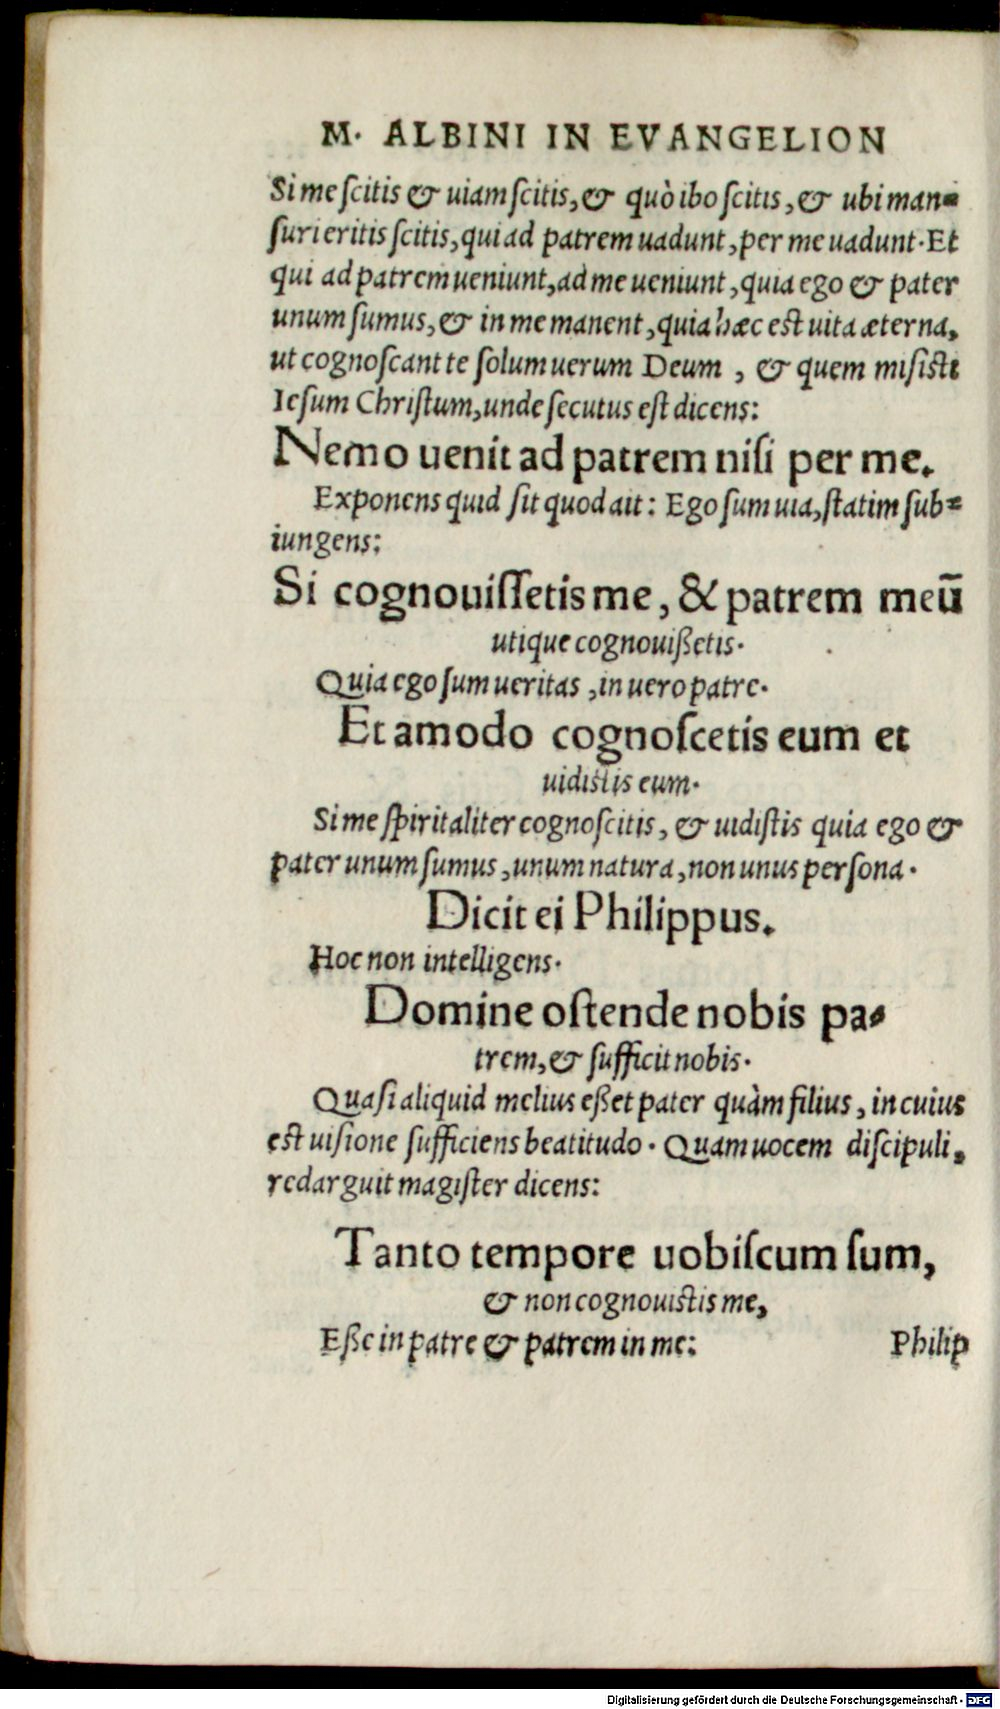 M. ALBINI IN EVANGELION
Si me ſcitis & uiam ſcitis, & quò ibo ſcitis, & ubi man=
ſuri eritis ſcitis, qui ad patrem uadunt, per me uadunt. Et
qui ad patrem ueniunt, ad me ueniunt, quia ego & pater
unum ſumus, & in me manent, quia hæc est uita æterna,
ut cognoſcant te ſolum uerum Deum, & quem misisti
Ieſum Chriſtum, unde ſecutus eſt dicens:
Nemo uenit ad patrem niſi per me.
Exponens quid ſit quod ait: Ego ſum uia, ſtatim ſub=
iungens:
Si cognouiſſetis me, & patrem meū
utique cognouißetis.
Quia ego ſum ueritas, in uero patre.
Et amodo cognoſcetis eum et
uidistis eum.
Si me ſpiritaliter cognoſcitis, & uidiſtis quia ego &
pater unum ſumus, unum natura, non unus perſona.
Dicit ei Philippus.
Hoc non intelligens.
Domine oſtende nobis pa=
trem, & ſufficit nobis.
Quaſi aliquid melius eßet pater quàm filius, in cuius
est uiſione ſufficiens beatitudo. Quam uocem diſcipuli,
redarguit magiſter dicens:
Tanto tempore uobiſcum ſum,
& non cognouistis me,
Eße in patre & patrem in me:
Philip
Digitalisierung gefördert durch die Deutsche Forschungsgemeinschaft - DFG